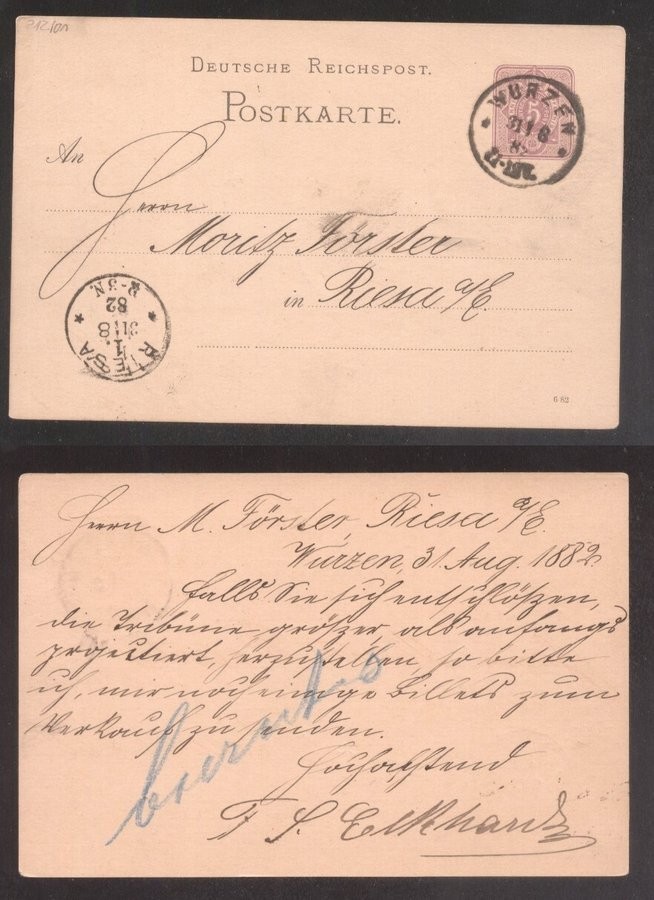 212/01
DEUTSCHE REICHSPOST.
POSTKARTE.
WURZEN
31 8
5
An
Herrn
Moritz Förster
in Riesa a/E.
RIESA
1.
31 8
82
2-3N.
6 82
Herrn M. Förster, Riesa a/E.
Wurzen, 31. Aug. 1882
Falls Sie sich entschlößen,
die Tribüne größer, als anfangs
projectiert, herzustellen, so bitte
ich, mir noch einige Billets zum
Verkauf zu senden.
Hochachtend
F S.